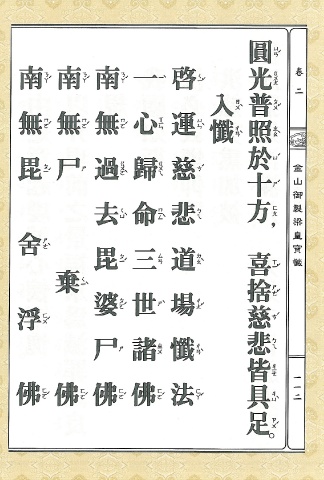 卷二
金山御製梁皇寶懺
一一二
圓光普照於十方，喜捨慈悲皆具足。
入懺
啓運慈悲道場懺法
一心歸命三世諸佛
南無過去毘婆尸佛
南無尸棄佛
南無毘舍浮佛